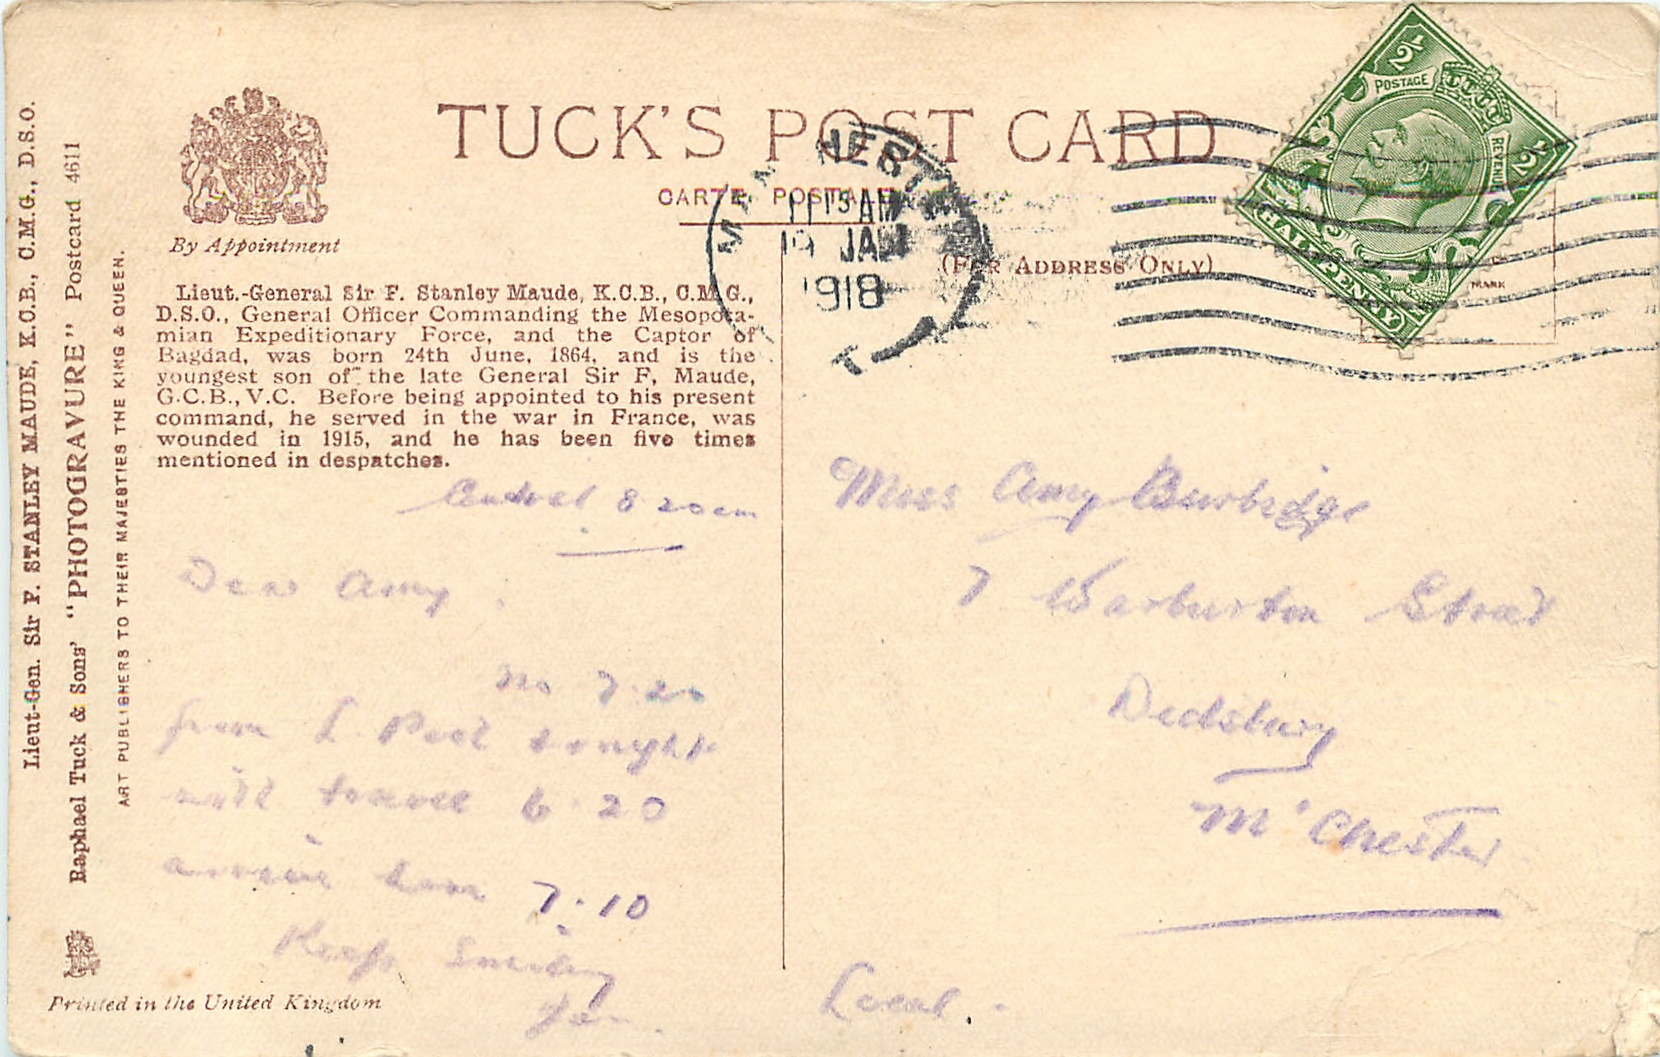 TUCK'S POST CARD
CARTE POSTALE
(FOR ADDRESS ONLY)
By Appointment
Lieut.-General Sir F. Stanley Maude, K.C.B., C.M.G.,
D.S.O., General Officer Commanding the Mesopota-
mian Expeditionary Force, and the Captor of
Bagdad, was born 24th June, 1864, and is the
youngest son of the late General Sir F, Maude,
G.C.B., V.C. Before being appointed to his present
command, he served in the war in France, was
wounded in 1915, and he has been five times
mentioned in despatches.
Central 8 20am
Dear Amy.
No 7.20
from L. Pool tonight
will travel 6.20
arrive home 7.10
Keep Smiling
Miss Amy Burbidge
7 Warburton Street
Didsbury
M'Chester
Local.
Lieut-Gen. Sir F. STANLEY MAUDE, K.C.B., C.M.G., D.S.O.
Raphael Tuck & Sons' "PHOTOGRAVURE" Postcard 4611
ART PUBLISHERS TO THEIR MAJESTIES THE KING & QUEEN.
Printed in the United Kingdom
MANCHESTER
11 15 AM
19 JAN
1918
POSTAGE
REVENUE
HALFPENNY
½
½
MARK